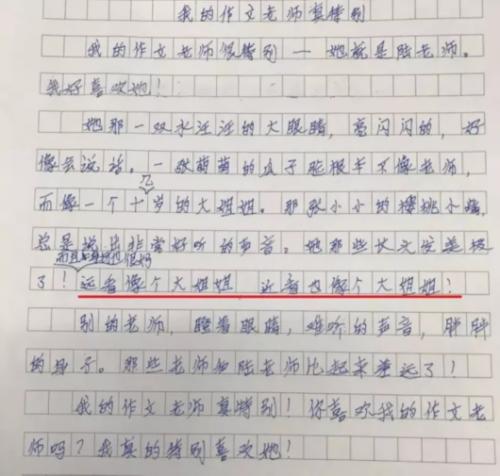 我的作文老师真特别
我的作文老师很特别一她就是陆老师。
我好喜欢她！
她那一双水汪汪的大眼睛，亮闪闪的，好
像会说话。一张萌萌的瓜子脸根本不像老师，
而像一个十几岁的大姐姐。那张小小的樱桃小嘴，
总是说出非常好听的声音。她那些长文发美极
很好
了！远看像个大姐姐，近看也像个大姐姐！
别的老师，瞪着眼睛，难听的声音，胖胖
的身子。那些老师和陆老师比起来差远了！
我的作文老师真特别！你喜欢我的作文老
师吗？我真的特别喜欢她！